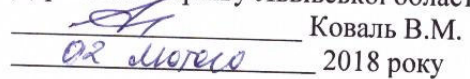 Коваль В.М.
02 лютого 2018 року